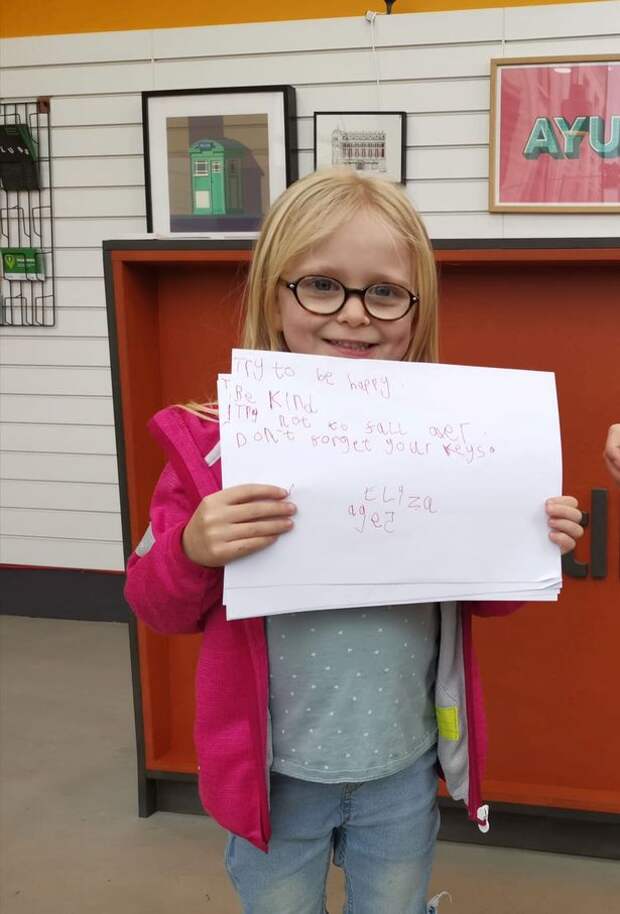 AYU
Try to be happy.
Be Kind
Try not to fall over.
Don't forget your keys.
ELIza
age 5